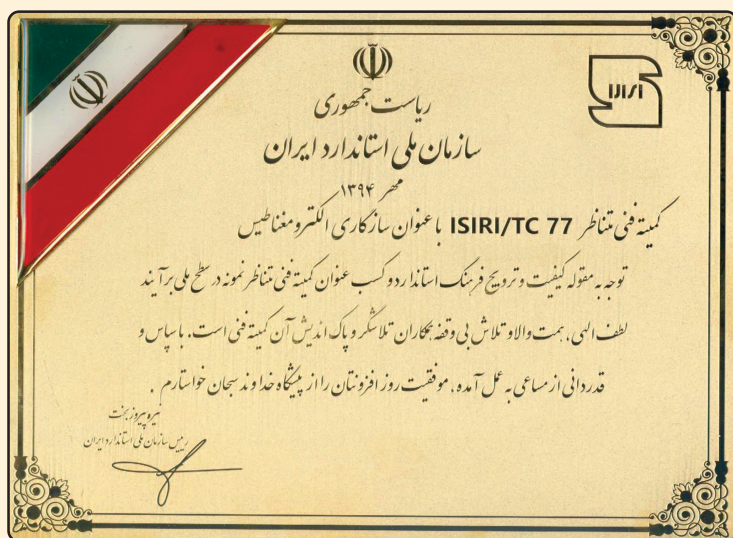 ISIRI
ریاست جمهوری
سازمان ملی استاندارد ایران
مهر ۱۳۹۴
کمیته فنی متناظر ISIRI/TC 77 با عنوان سازکاری الکترومغناطیس
توجه به مقوله کیفیت و ترویج فرهنگ استاندارد و کسب عنوان کمیته فنی متناظر نمونه در سطح ملی برآیند
لطف الهی، همت والا و تلاش بی وقفه همکاران تلاشگر و پاک اندیش آن کمیته فنی است. با سپاس و
قدردانی از مساعی به عمل آمده، موفقیت روز افزونتان را از پیشگاه خداوند سبحان خواستارم.
نیره پیروزبخت
رییس سازمان ملی استاندارد ایران